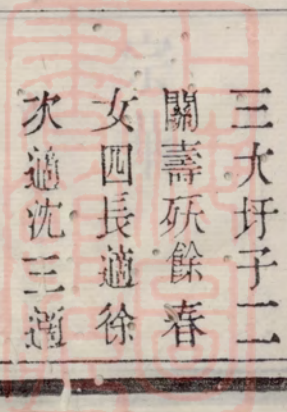 三大圩子二
關壽殀餘春
女四長適徐
次適沈三適